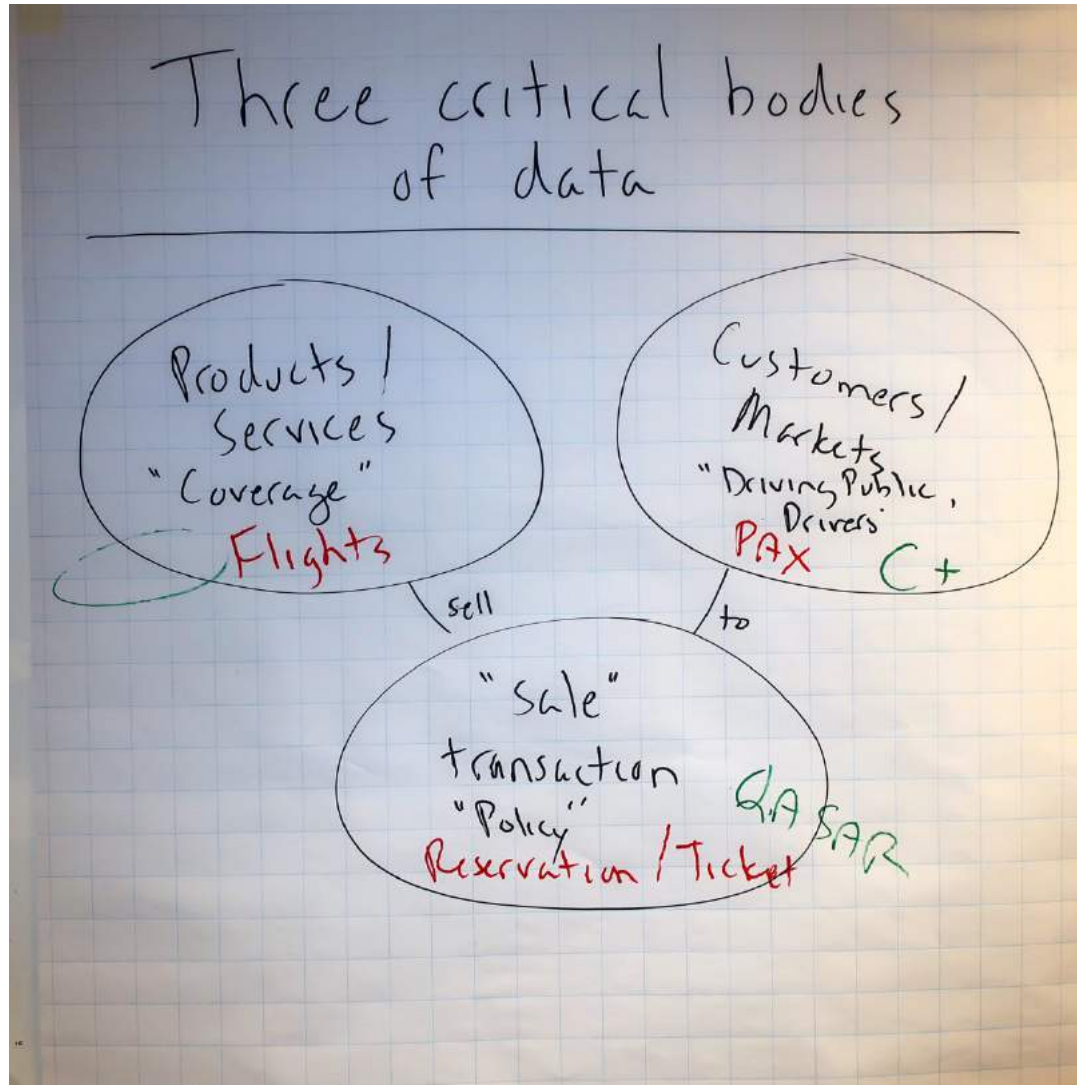 Three critical bodies
of data
Products /
Services
"Coverage"
Flights
Customers /
Markets
"Driving Public,
Drivers"
PAX
C+
sell
to
"Sale"
transaction
"Policy"
QASAR
Reservation / Ticket